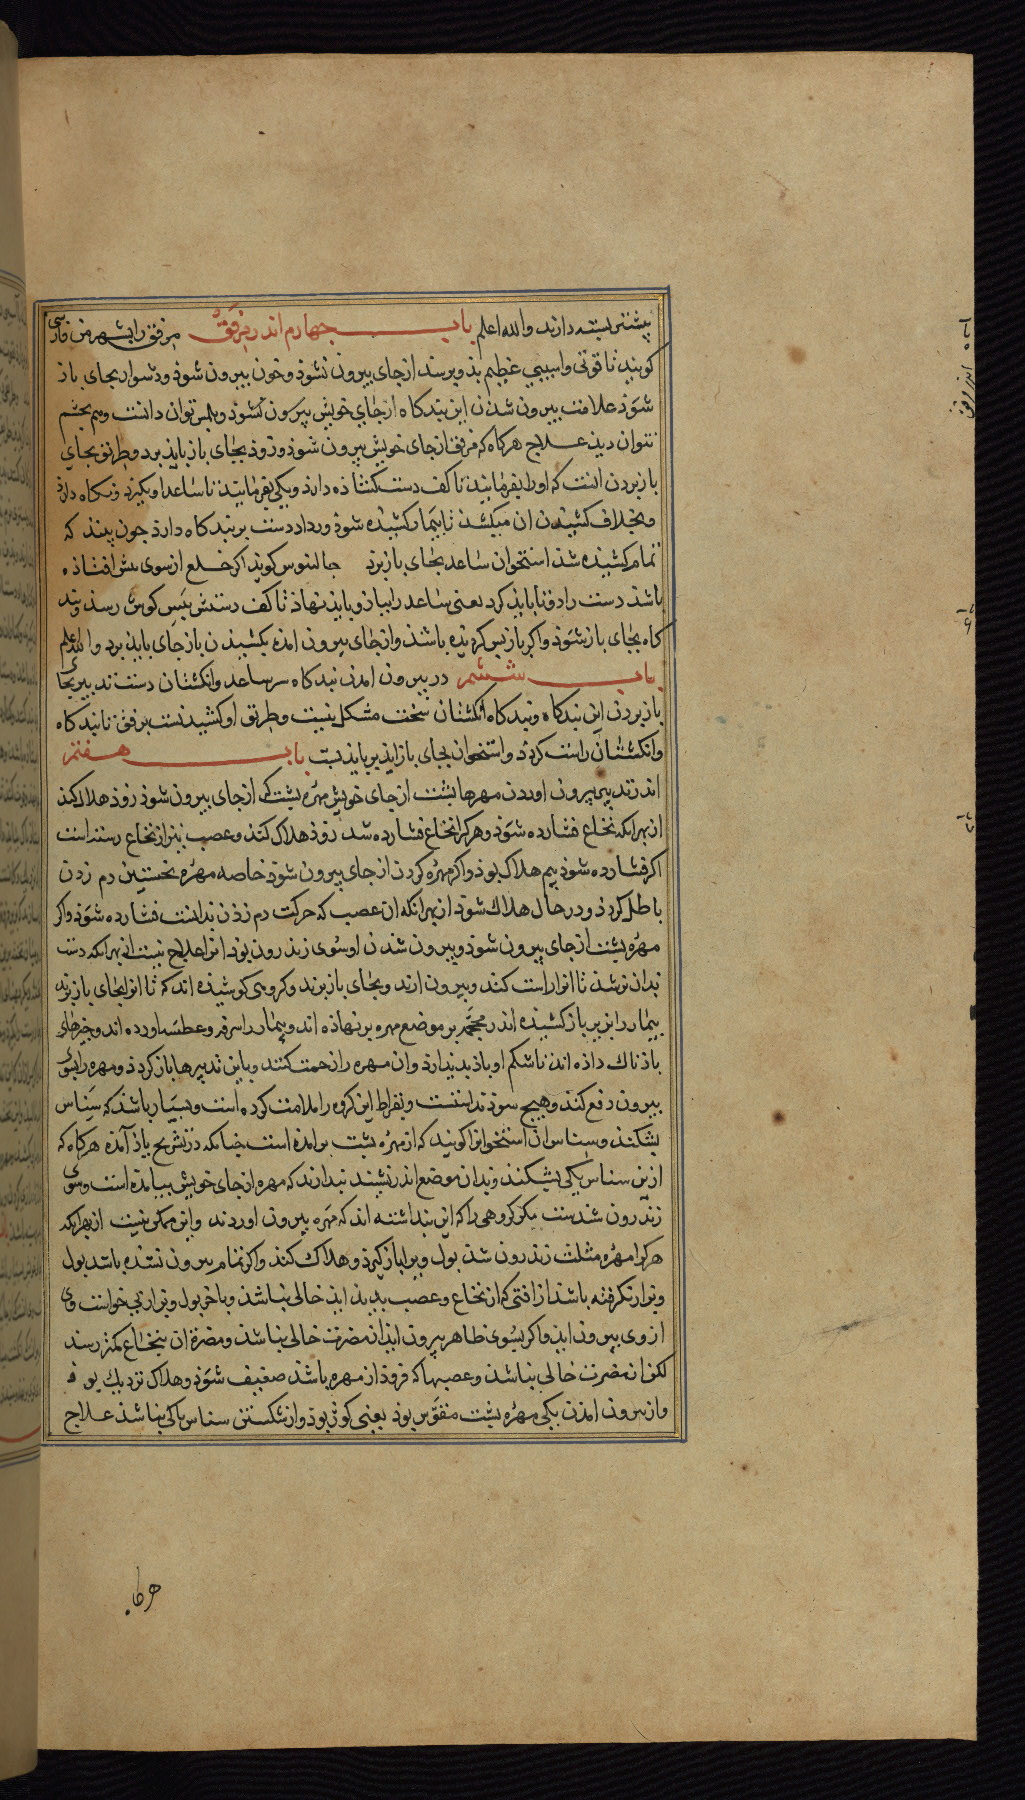 پیشتر بسته دارند والله اعلم باب چهارم اندر مرفق مرفق را بشهر من فارسی
کویند تا قوتی واسیبی عظیم بذو نرسد ازجای بیرون نشوذ وچون بیرون شوذ ودشوار بجای باز
شوذ علامت بیرون شذن این بندکاه ازجای خویش بیرون شوذ وبلمس توان دانست وهم بچشم
بتوان دیذ علاج هرکاه که مرفق ازجای خویش بیرون شوذ وزوذ بجای باز بایذ برد وطریق بجای
باز بردن انست که اورا بفرمایند تا کف دست کشاذه دارد ویکی بفرمایند تا ساعد او بکیرد ونکاه دارد
وبخلاف کشیدن ان میکشد تا بتمام کشیده شوذ ودست بر بندکاه دارد چون بیند که
تمام کشیده شد استخوان ساعد بجای باز برد جالینوس کوید اکر خلع ازسوی پیش افتاذه
باشد دست را دوتا باید کرد یعنی ساعد را بیازو باید نهاذ تا کف دستش بپس کوش رسد
کاه بجای باز شوذ واکر باز پس کردیده باشد وازجای بیرون امده بکشیدن باز جای باید برد والله اعلم
باب ششم در بیرون امدن بندکاه سر ساعد وانکشتان دست تدبیر بجای
باز بردن این بندکاه وبندکاه انکشتان سخت مشکل نیست وطریق او کشیدنست برفق تا بندکاه
وانکشتان راست کردد واستخوان بجای باز اید پس بباید بست باب هفتم
اندر تدبیر بیرون اوردن مهرها پشت ازجای خویش مهره پشت که ازجای بیرون شوذ زوذ هلاک کند
از بهر انکه نخاع فشارده شوذ وهرکرا نخاع فشارده شد زوذ هلاک کند وعصب نیز از نخاع رسته است
اکر فشارده شوذ بیم هلاک بوذ واکر مهره کردن ازجای بیرون شوذ خاصه مهره نخستین دم زدن
باطل کردد ودر حال هلاک شوذ از بهر انکه ان عصب که حرکت دم زدن بدانست فشارده شوذ واکر
مهره پشت ازجای بیرون شوذ وبیرون شدن او سوی زندرون بوذ انرا علاج نیست از بهر انکه دست
بدان نرسد تا انرا راست کند وبیرون ارند وبجای باز برند وکروهی کوشیده اند که تا انرا بجای باز برند
بیمار را بزیر باز کشیده اند ومحجمه بر موضع مهره بر نهاذه اند وبیمار را سرفه وعطسه اورده اند وچیزهای
باذناک داذه اند تا شکم او باذ بدید ارد وان مهره را زحمت کند وباین تدبیرها باز کردد ومهره را بسوی
بیرون دفع کند وهیچ سوذ نداشتست وبقراط این کروه را ملامت کرده است وبسیار باشد که سناسن
بشکند وسناسن ان استخوانرا کویند که از مهره پشت برامده است چنانکه در تشریح یاذ آمده هرکاه که
ازین سناسن یکی بشکند وبدان موضع اندر نشیند پندارند که مهره ازجای خویش بیامده است وسوی
زندرون شدست مکر کروهی را که این پنداشته اند که مهره بیرون اوردند واین ممکن نیست از بهر انکه
هرکرا مهره مثلث زندرون شد بول ویرا باز کیرد وهلاک کند واکر تمام بیرون نشده باشد بول
ویرا نکرفته باشد از افتی که از نخاع وعصب بدید اید خالی نباشد وباخر بول وبراز بی خواست وی
ازوی بیرون اید واکر بسوی ظاهر بیرون اید از مضرت خالی نباشد ومضرت ان بنخاع کمتر رسد
لکن از مضرت خالی نباشد وعصبها که فروذ از مهره باشد ضعیف شوذ وهلاک نزدیک بوذ
واز بیرون امدن یکی مهره پشت متقوس بوذ یعنی کوژ بوذ واز شکستن سناسن باکی نباشد علاج
باب اندر مرفق
باب ۶
باب ۷
هرکاه